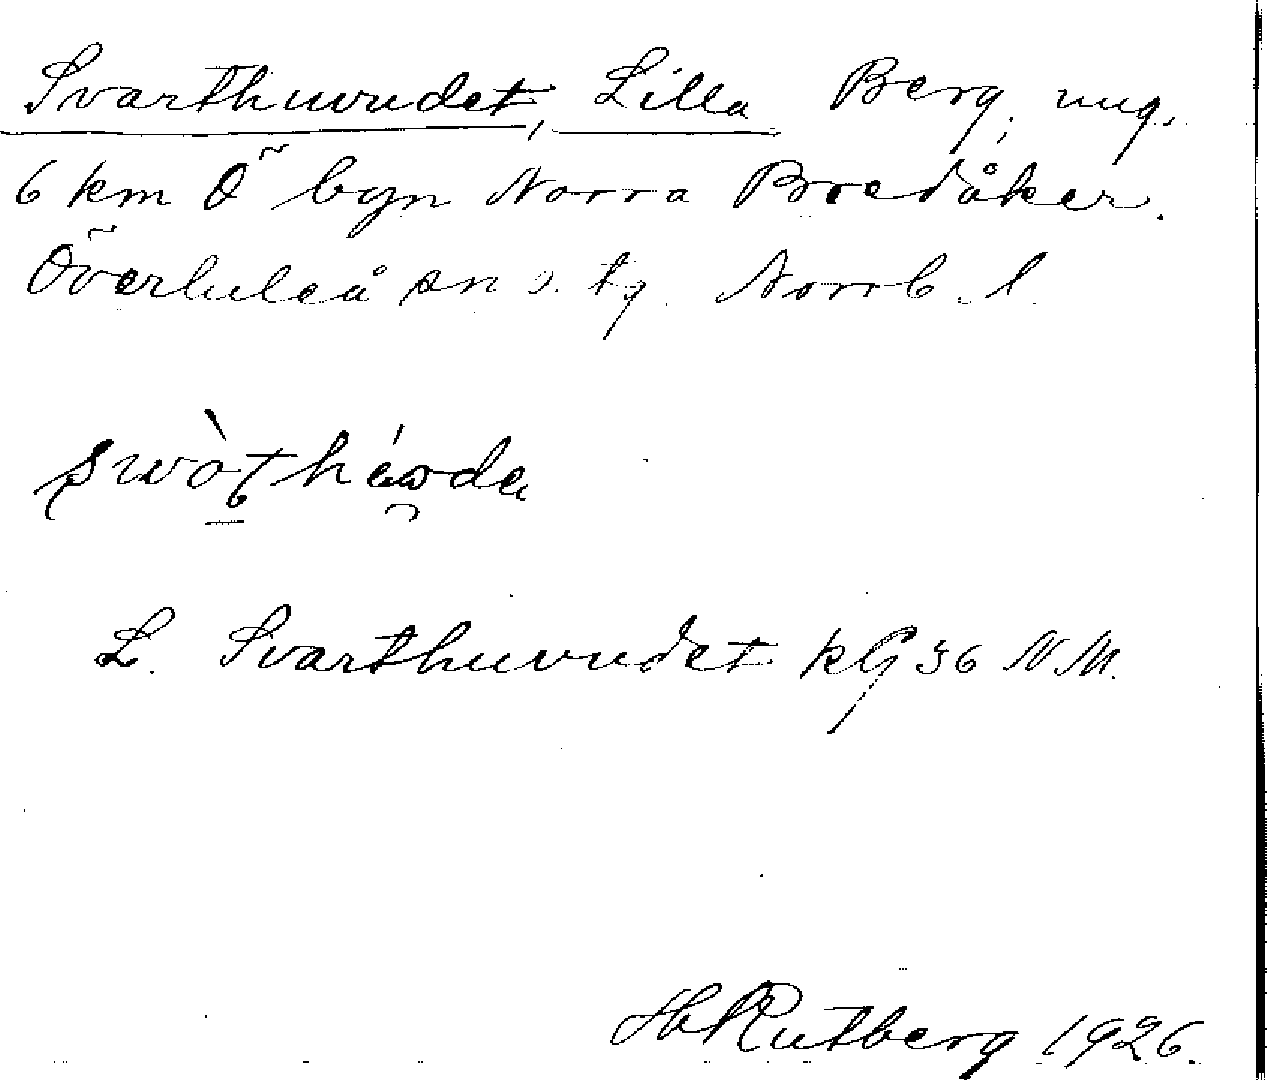 Svarthuvudet, Lilla Berg, ung.
6 km Ö byn Norra Bredåker.
Överluleå sn o. tg. Norrb. l.
L. Svarthuvudet kG 36 N.M.
H Rutberg 1926.